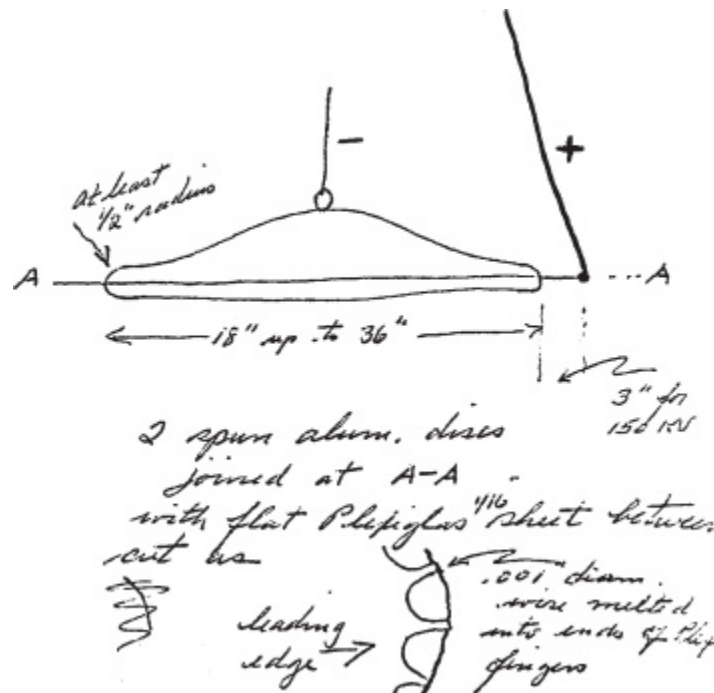 −
+
at least
1/2" radius
A
... A
18" up to 36"
3" for
150 KV
2 spun alum. discs
joined at A-A
with flat Plexiglas 1/16" sheet between
cut as
.001" diam.
wire melted
into ends of Plex
fingers
leading
edge